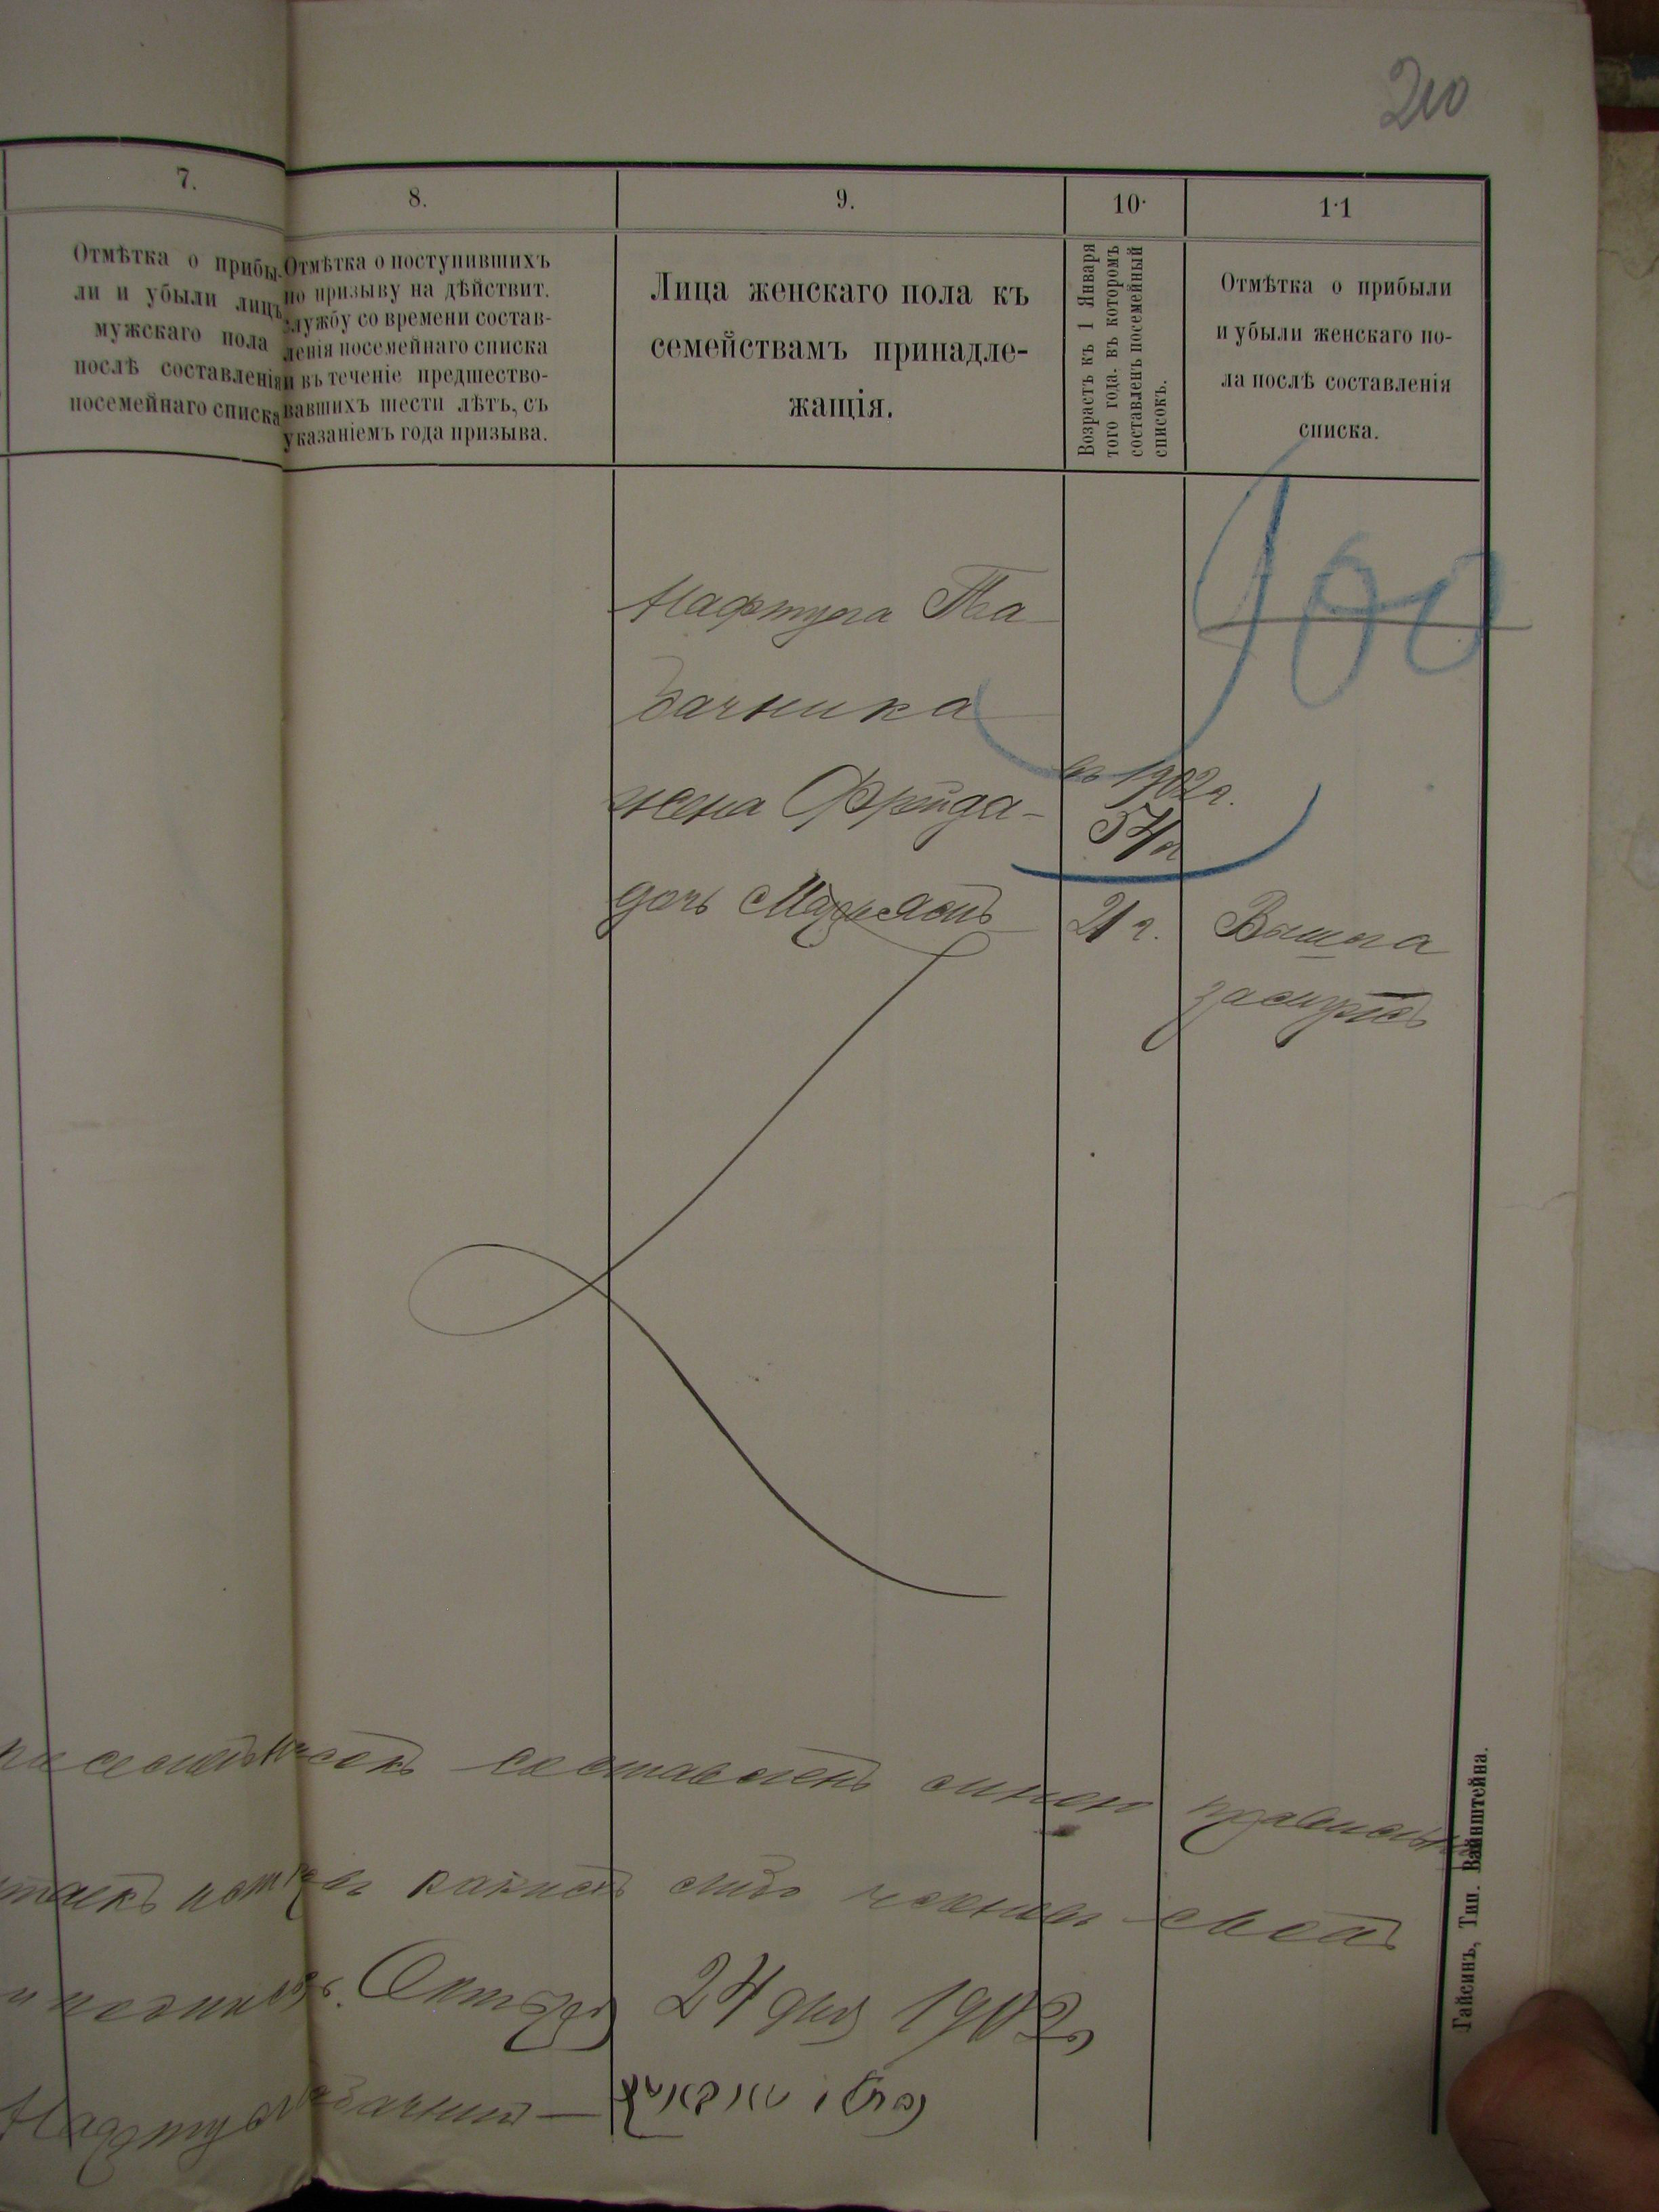 210
7.
8.
9.
10.
11
Отмѣтка о прибы-
ли и убыли лицъ
мужскаго пола
послѣ составленія
посемейнаго списка
Отмѣтка о поступившихъ
по призыву на дѣйствит.
службу со времени состав-
ленія посемейнаго списка
и въ теченіе предшество-
вавшихъ шести лѣтъ, съ
указаніемъ года призыва.
Лица женскаго пола къ
семействамъ принадле-
жащія.
Возрастъ къ 1 Января
того года. въ которомъ
составленъ посемейный
списокъ.
Отмѣтка о прибыли
и убыли женскаго по-
ла послѣ составленія
списка.
Нафтула Та-
бачника
жена Фрейда
въ 1902 г.
54 л
дочь Марьямъ
21 г.
Вышла
замужъ
составленъ мною правильно
какихъ либо членовъ
24 дня 1902 г
Нафтул
Гайсинъ, Тип. Вайнштейна.